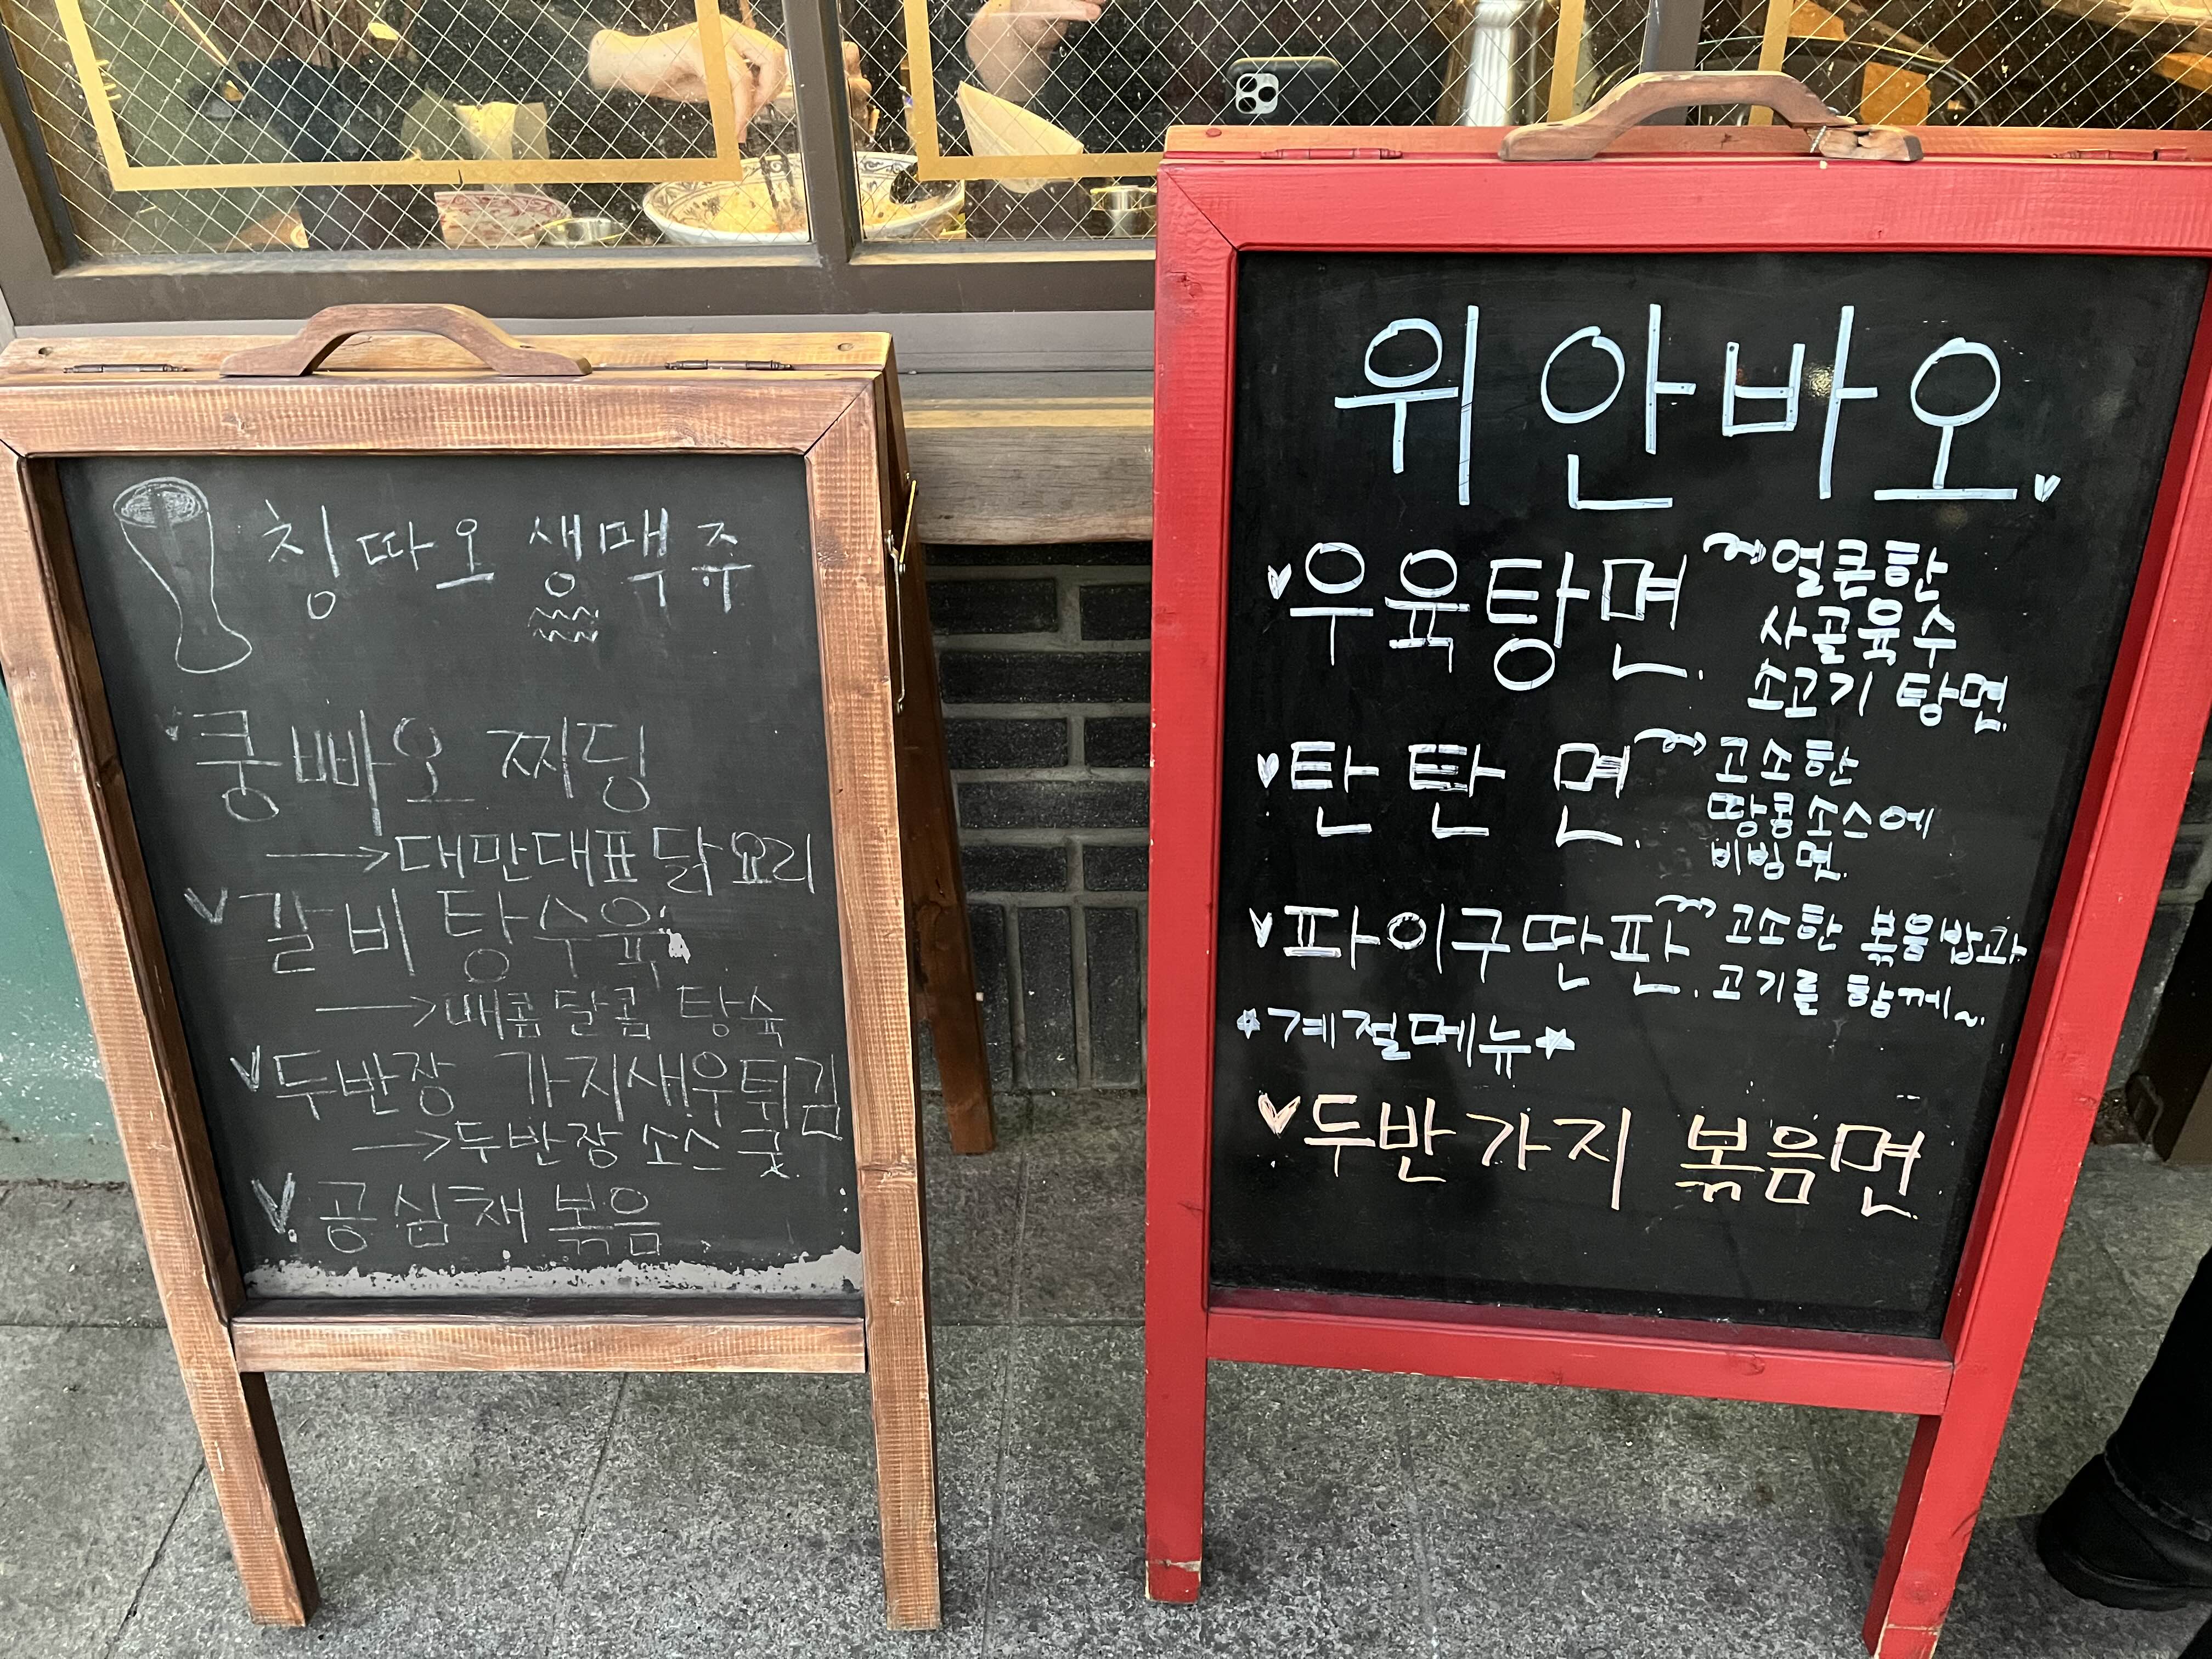 칭따오 생맥주
쿵빠오 찌딩
→대만대표닭요리
갈비 탕수육
→매콤달콤 탕슉
두반장 가지새우튀김
→두반장소스굿
공심채볶음
위안바오
우육탕면.
얼큰한
사골육수
소고기 탕면.
탄탄면.
고소한
땅콩소스에
비빔면.
파이구딴판.
고소한 볶음밥과
고기를 함께~.
계절메뉴
두반가지 볶음면.